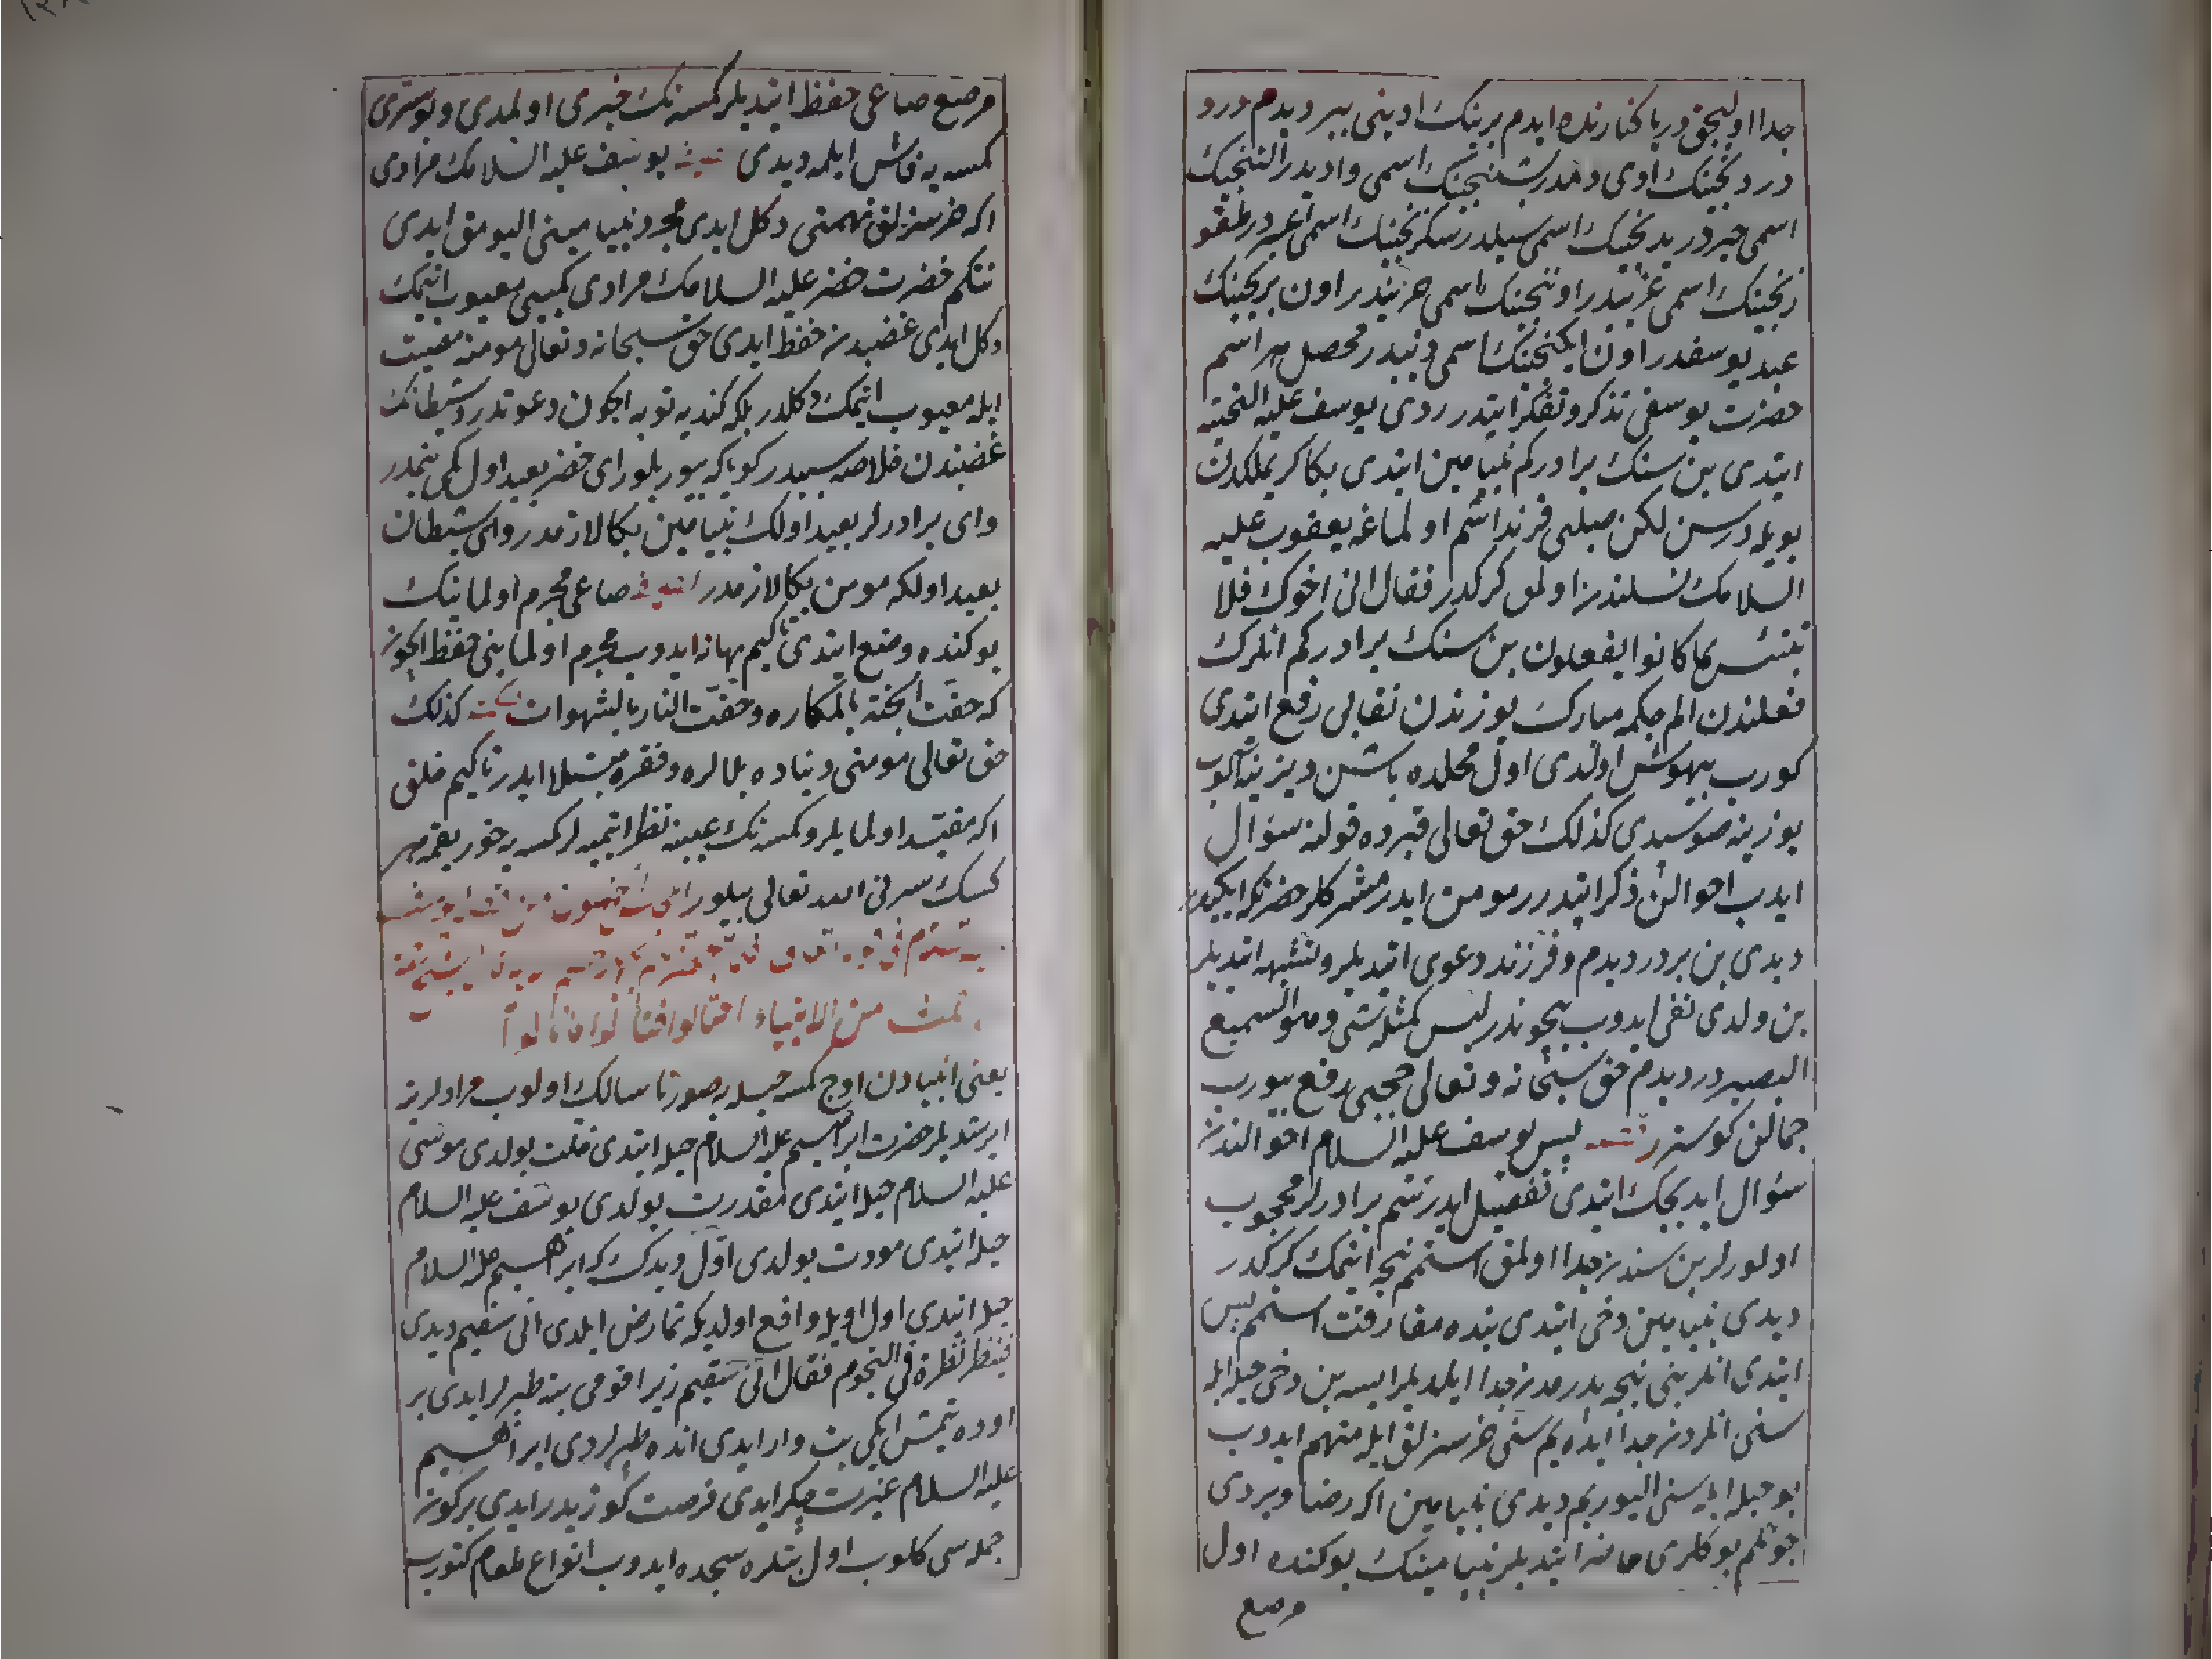 جدا اولیجق دریا کنارنده ایدم برینک ادینی بیر دیدم درد
درد نجینک اوی دمدر بشنجینک اسمی وادیدر التنجینک
اسمی خبردر یدنجینک اسمی سیلدر سکزنجینک اسمی اعبردر طقو
زنجینک اسمی اوننجینک اسمی حزیندر اون برنجینک
عبد یوسفدر اون ایکنجینک اسمی دنیدر محصل هر اسم
حضرت یوسفی تذکر و تفکر ایتدرردی یوسف علیه التحیه
ایتدی بن سنک برادرکم بنیامین ایتدی بکا کریملکدن
بویله درسن لکن صلبی فرنداشم اولماغه یعقوب علیه
السلامک نسلندن اولمق کرکدر فقال انی اخوک فلا
تبتئس بما کانوا یفعلون بن سنک برادرکم انلرک
فعلندن الم چکمه مبارک یوزندن نقابی رفع ایتدی
کورب بیهوش اولدی اول محلده باشن دیزینه آلوب
یوزینه صو سپدی کذلک حق تعالی قبرده قولنه سؤال
ایدب احوالن ذکر ایتدرر مومن ایدر مشرکلر حضرتکه ایکیدر
دیدی بن بردر دیدم و فرزند دعوی اتدیلر و تشبیه اتدیلر
بن ولدی نفی ایدوب بیچوندر لیس کمثله شی و هو السمیع
البصیر در دیدم حق سبحانه و تعالی حجبی رفع بیورب
جمالن کوسترر پس یوسف علیه السلام احوالندن
سؤال ایدیجک ایتدی تفصیل ایدرسم برادرلر محجوب
اولورلر بن سندن جدا اولمق استمم نیجه ایتمک کرکدر
دیدی بنیامین دخی ایتدی بنده مفارقت استمم پس
ایتدی انلر بنی نیجه پدرمدن جدا ایلدیلر ایسه بن دخی حیله ایله
سنی انلردن جدا ایدەیم سنی خرسزلق ایله متهم ایدوب
بو حیله ایله سنی الیوریم دیدی بنیامین اکه رضا ویردی
چونکم یوکلری حاضر ایتدیلر بنیامینک یوکنده اول
مرصع
مرصع صاعی حفظ ایتدیلر کمسه نک خبری اولمدی و بو سری
کمسه یه فاش ایلمه دیدی یوسف علیه السلامک مرادی
اکه خرسزلق تهمتی دکل ایدی مجرد بنیامینی الیومق ایدی
نتکم حضرت خضر علیه السلامک مرادی کمییی معیوب اتمک
دکل ایدی غضبدن حفظ ایدی حق سبحانه و تعالی مومنه مصیبت
ایله معیوب اتمک دکلدر بلکه کندیه توبه ایچون دعوتدر و شیطانک
غضبندن خلاصه سببدر کویا که بیوریلور ای خضر بعید اول کمی بنمدر
وای برادرلر بعید اولک بنیامین بکا لازمدر وای شیطان
بعید اولکه مومن بکا لازمدر صاعی مجرم اولماینک
یوکنده وضع ایتدی تاکیم بهانه ایدوب مجرم اولماینی حفظ ایچون
که حفت الجنه بالمکاره و حفت النار بالشهوات نکته کذلک
حق تعالی مومنی دنیاده بلالره و فقره مبتلا ایدر تاکیم خلق
اکه مقید اولمایلر و کمسه نک عیبنه نظر اتمیه لر کمسه یه خور بقمه هر
کسک سرنی الله تعالی بیلور
ثلث من الانبیاء احتالوا فنالوا ما نالوا
یعنی انبیادن اوچ کمسه حیله یه صورتا سالک اولوب مرادلرنه
ایرشدیلر حضرت ابراهیم علیه السلام حیله ایتدی خلت بولدی موسی
علیه السلام حیله ایتدی مقدرت بولدی یوسف علیه السلام
حیله ایتدی مودت بولدی اول دیدک که ابراهیم علیه السلام
حیله ایتدی اول اویله واقع اولدیکه تمارض ایلدی انی سقیم دیدی
فنظر نظرة فی النجوم فقال انی سقیم زیرا قومی بته طپرلر ایدی بر
اوده یتمش ایکی بت وار ایدی انده طپرلردی ابراهیم
علیه السلام غیرت چکر ایدی فرصت کوزیدر ایدی بر کون
جمله سی کلوب اول بتلره سجده ایدوب انواع طعام کتورب